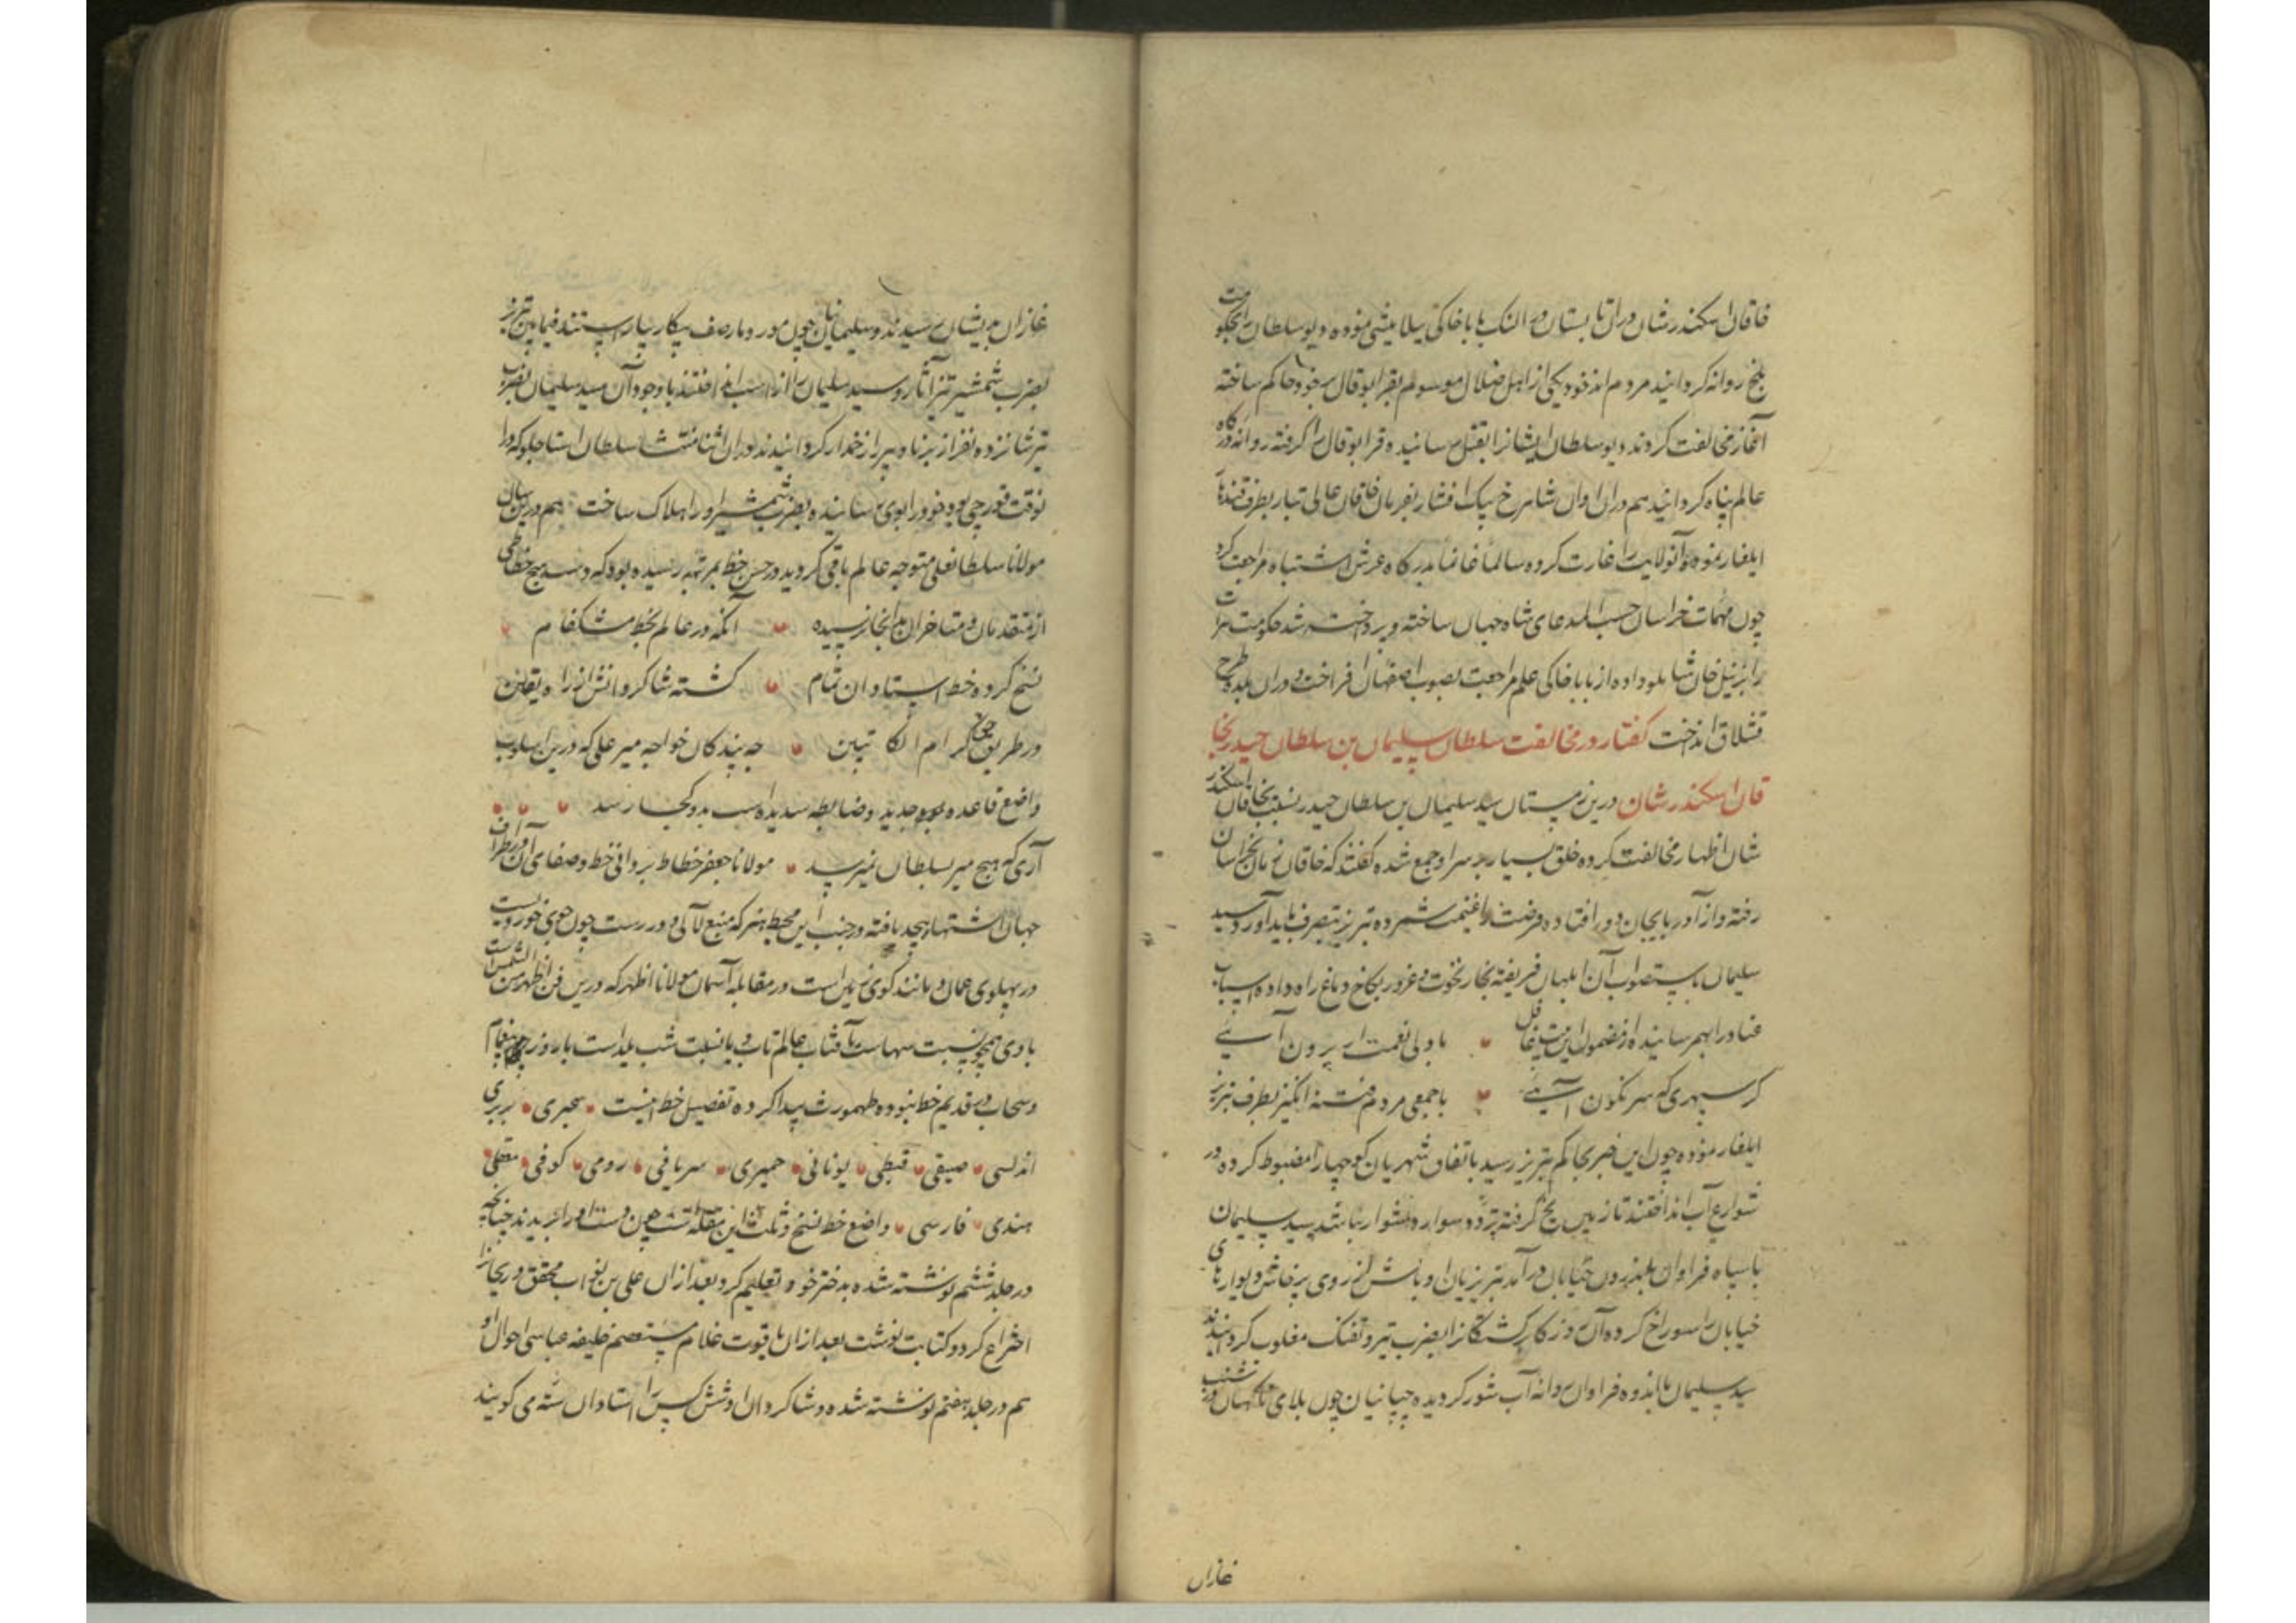 خاقان اسکندر شان دران تابستان در النک بابا خاکی ییلامیشی نموده دیو سلطانرا بحکومت
بلخ روانه کردانید مردم اندخود یکی از اهل ضلال موسوم بقرا بوقال بر خود حاکم ساخته
آغاز مخالفت کردند دیو سلطان ایشانرا بقتل رسانیده قرا بوقال را کرفته روانه درکاه
عالم پناه کردانید هم دران اوان شاهرخ بیک افشار بفرمان خاقان عالی تبار بطرف قندهار
ایلغار نموده آنولایت را غارت کرده سالما غانما بدرکاه عرش اشتباه مراجعت کرد
چون مهمات خراسان حسب المدعای شاه جهان ساخته و پرداخته شد حکومت هرات
را بزینل خان شاملو داده از بابا خاکی علم مراجعت بصوب اصفهان افراخت و دران بلده طرح
قشلاق انداخت کفتار در مخالفت سلطان سلیمان بن سلطان حیدر بخا
قان اسکندر شان درین زمستان سید سلیمان بن سلطان حیدر نسبت بخاقان اسکندر
شان اظهار مخالفت کرده خلق بسیار بر سر او جمع شده کفتند که خاقان زمان بخراسان
رفته و از آذربایجان دور افتاده فرصت را غنیمت شمرده تبریز بتصرف باید آورد سید
سلیمان باستصواب آن ابلهان فریفته بخار نخوت و غرور بکاخ دماغ راه داده اسباب
عناد را بهم رسانیده از مضمون این بیت غافل • با ولی نعمت ار برون آیی
کر سپهری که سرنکون آیی • با جمعی مردم فتنه انکیز بطرف تبریز
ایلغار نموده چون این خبر بحاکم تبریز رسید باتفاق شهریان کوچها را مضبوط کرده در
شوارع آب انداختند تا زمین یخ کرفته تردد سوار دشوار باشد سید سلیمان
با سپاه فراوان باندرون خیابان در آمد تبریزیان اوباش از روی پرخاش دیوارهای
خیابان را سوراخ کرده آن روزکار برکشتکانرا بضرب تیر و تفنک مغلوب کردانیدند
سید سلیمان با اندوه فراوان روانه آب شور کردیده چپانیان چون بلای ناکهان در شنب
غازان
غازان بدیشان رسیدند و سلیمانیان چون مور و مار صف پیکار بیاراستند فیمابین تبریز
بضرب شمشیر تیز آثار سید سلیمان را از اسب انداختند با وجود آن سید سلیمان بضرب
تیر شانزده نفر از برنا و پیر را زخمدار کردانیدند دران اثنا منتشا سلطان استاجلو که درا
نوقت قورچی بود خود را بوی رسانیده بضرب شمشیر او را هلاک ساخت هم درین سال
مولانا سلطانعلی متوجه عالم باقی کردید در حسن خط بمرتبه رسیده بود که دست هیچ خطاطی
از متقدمان و متاخران بدانجا نرسیده • آنکه در عالم بخط مشکفام •
نسخ کرده خط استادان تمام • کشته شاکردانش از راه یقین
در طریق خط کرام الکاتبین • چه بندکان خواجه میر علی که درین اسلوب
واضع قاعده جدید و ضابطه سدیده است بدو کجا رسد • • •
آری که هیچ میر بسلطان نمیرسد • مولانا جعفر خطاط بر وافی خط و صفای آن در اطراف
جهان اشتهار بیحد یافته در جنب این محیط هنر که منبع لآلی و در رست چون جوی خوردیست
در پهلوی عمان و مانند کوی زمین است در مقابله آسمان مولانا اظهر که درین فن اظهر من الشمس است
با وی همچو نسبت سهاست بآفتاب عالم تاب و یا نسبت شب یلداست با روز
و سحاب در قدیم خط نبوده طهمورث پیدا کرده تفصیل خط اینست • عبری • بربری
اندلسی • صیقی • قبطی • یونانی • حمیری • سریانی • رومی • کوفی • معقلی •
هندی • فارسی • واضع خط نسخ و ثلث ابن مقله است چون دست او را بریدند چنانچه
در جلد ششم نوشته شده بدختر خود تعلیم کرد بعد از ان علی بن بواب محقق و ریحانرا
اختراع کرد و کتابت نوشت بعد از ان یاقوت غلام مستعصم خلیفه عباسی احوال او
هم در جلد هفتم نوشته شده و شاکردان او شش کس را استادان سته می کویند